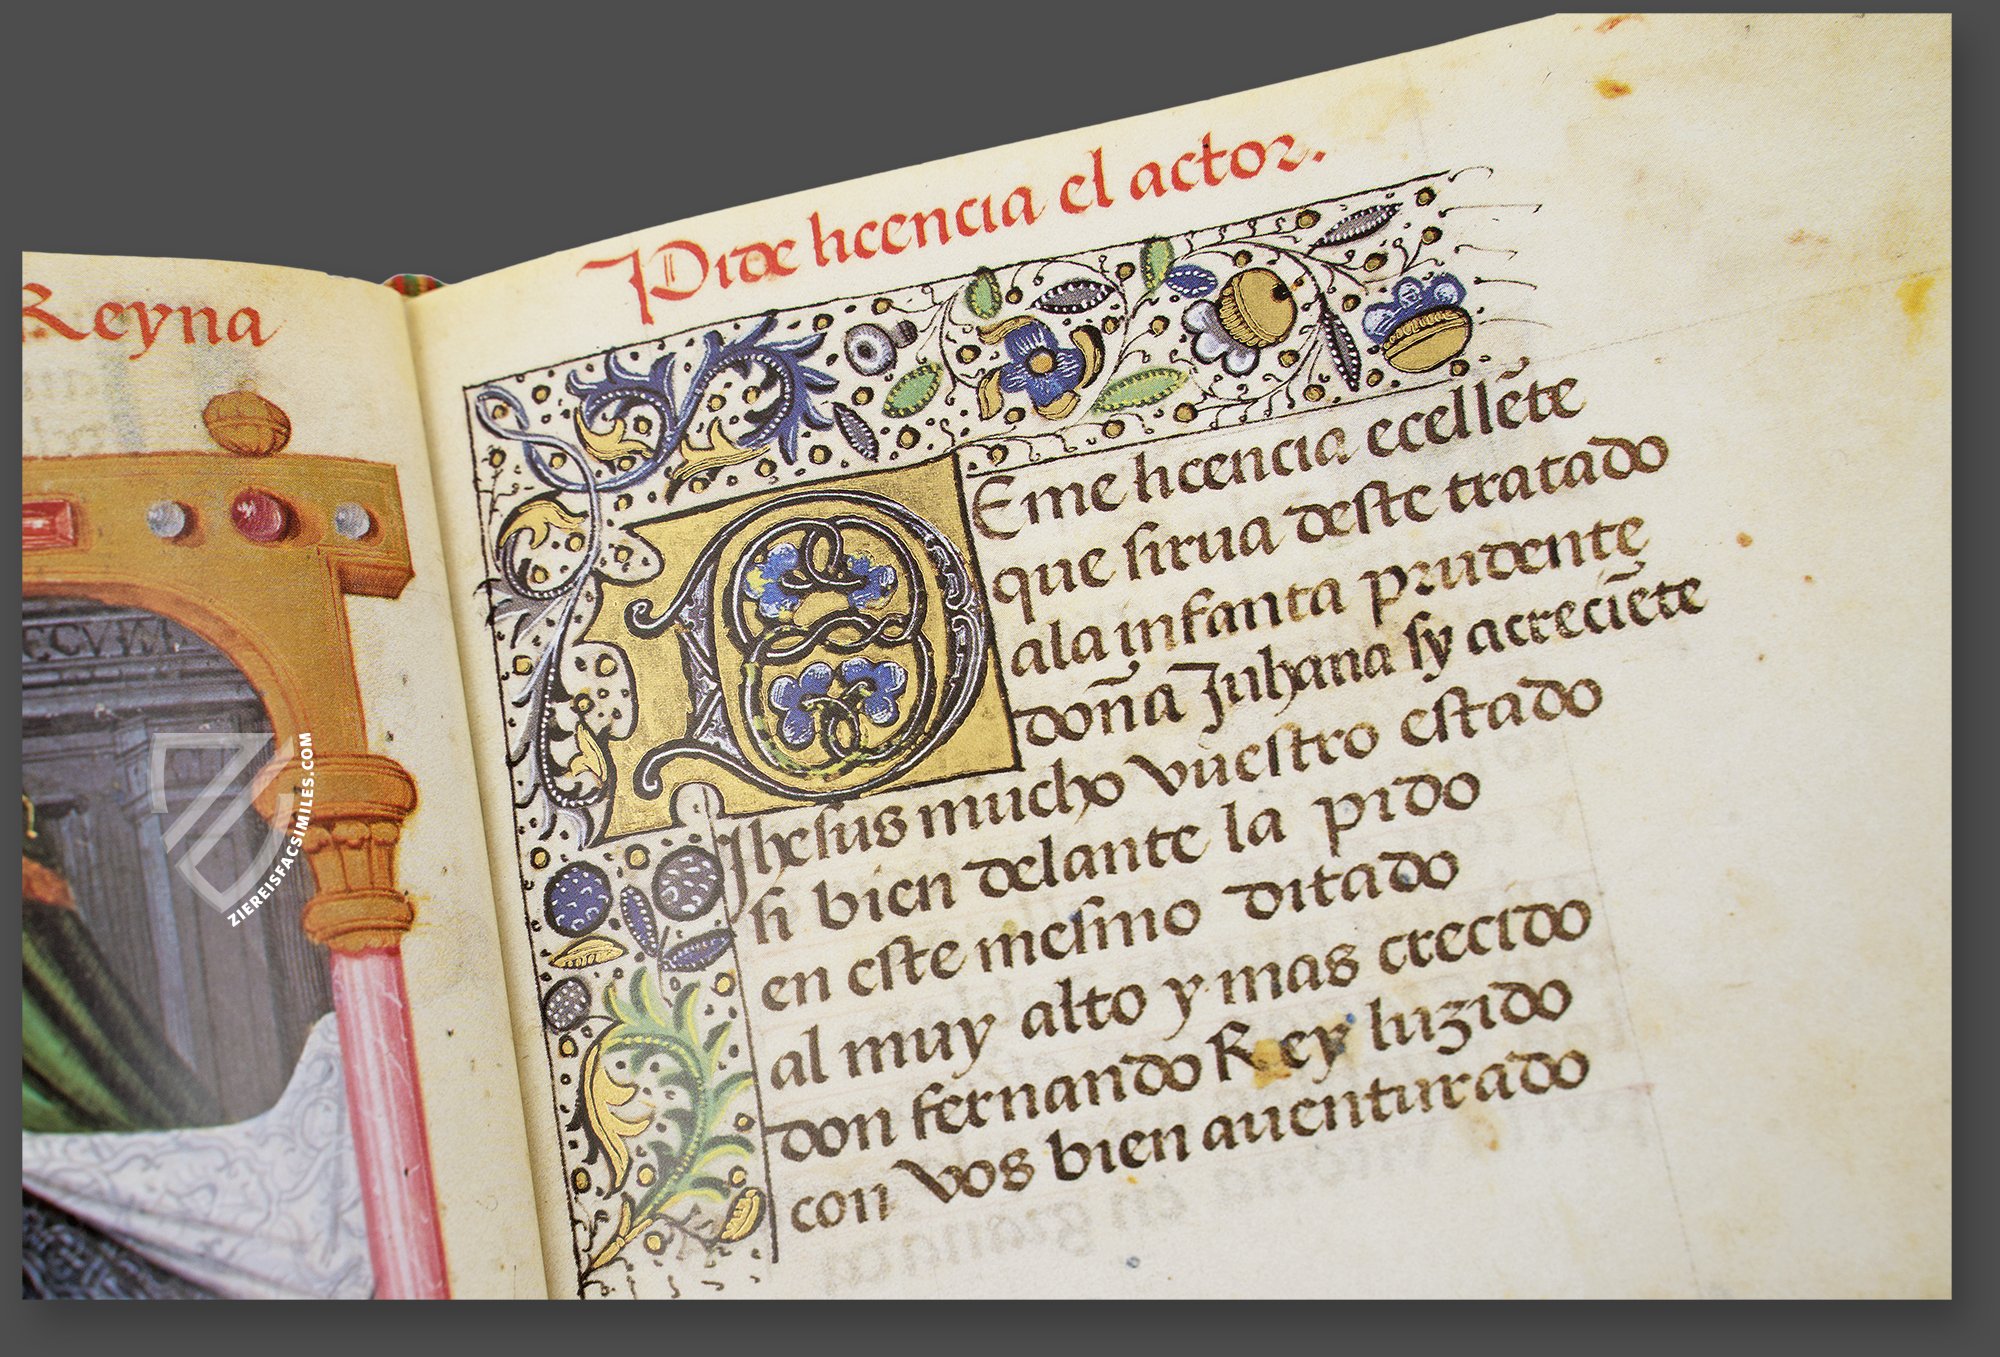 Reyna
ECVM
ZIEREISFACSIMILES.COM
Pide licencia el actor.
DEme licencia ecellẽte
que sirua deste tratado
ala infanta prudente
doña Juhana sy acreciẽte
Jhesus mucho vuestro estado
si bien delante la pido
en este mesmo ditado
al muy alto y mas crecido
don fernando Rey luzido
con vos bien auenturado